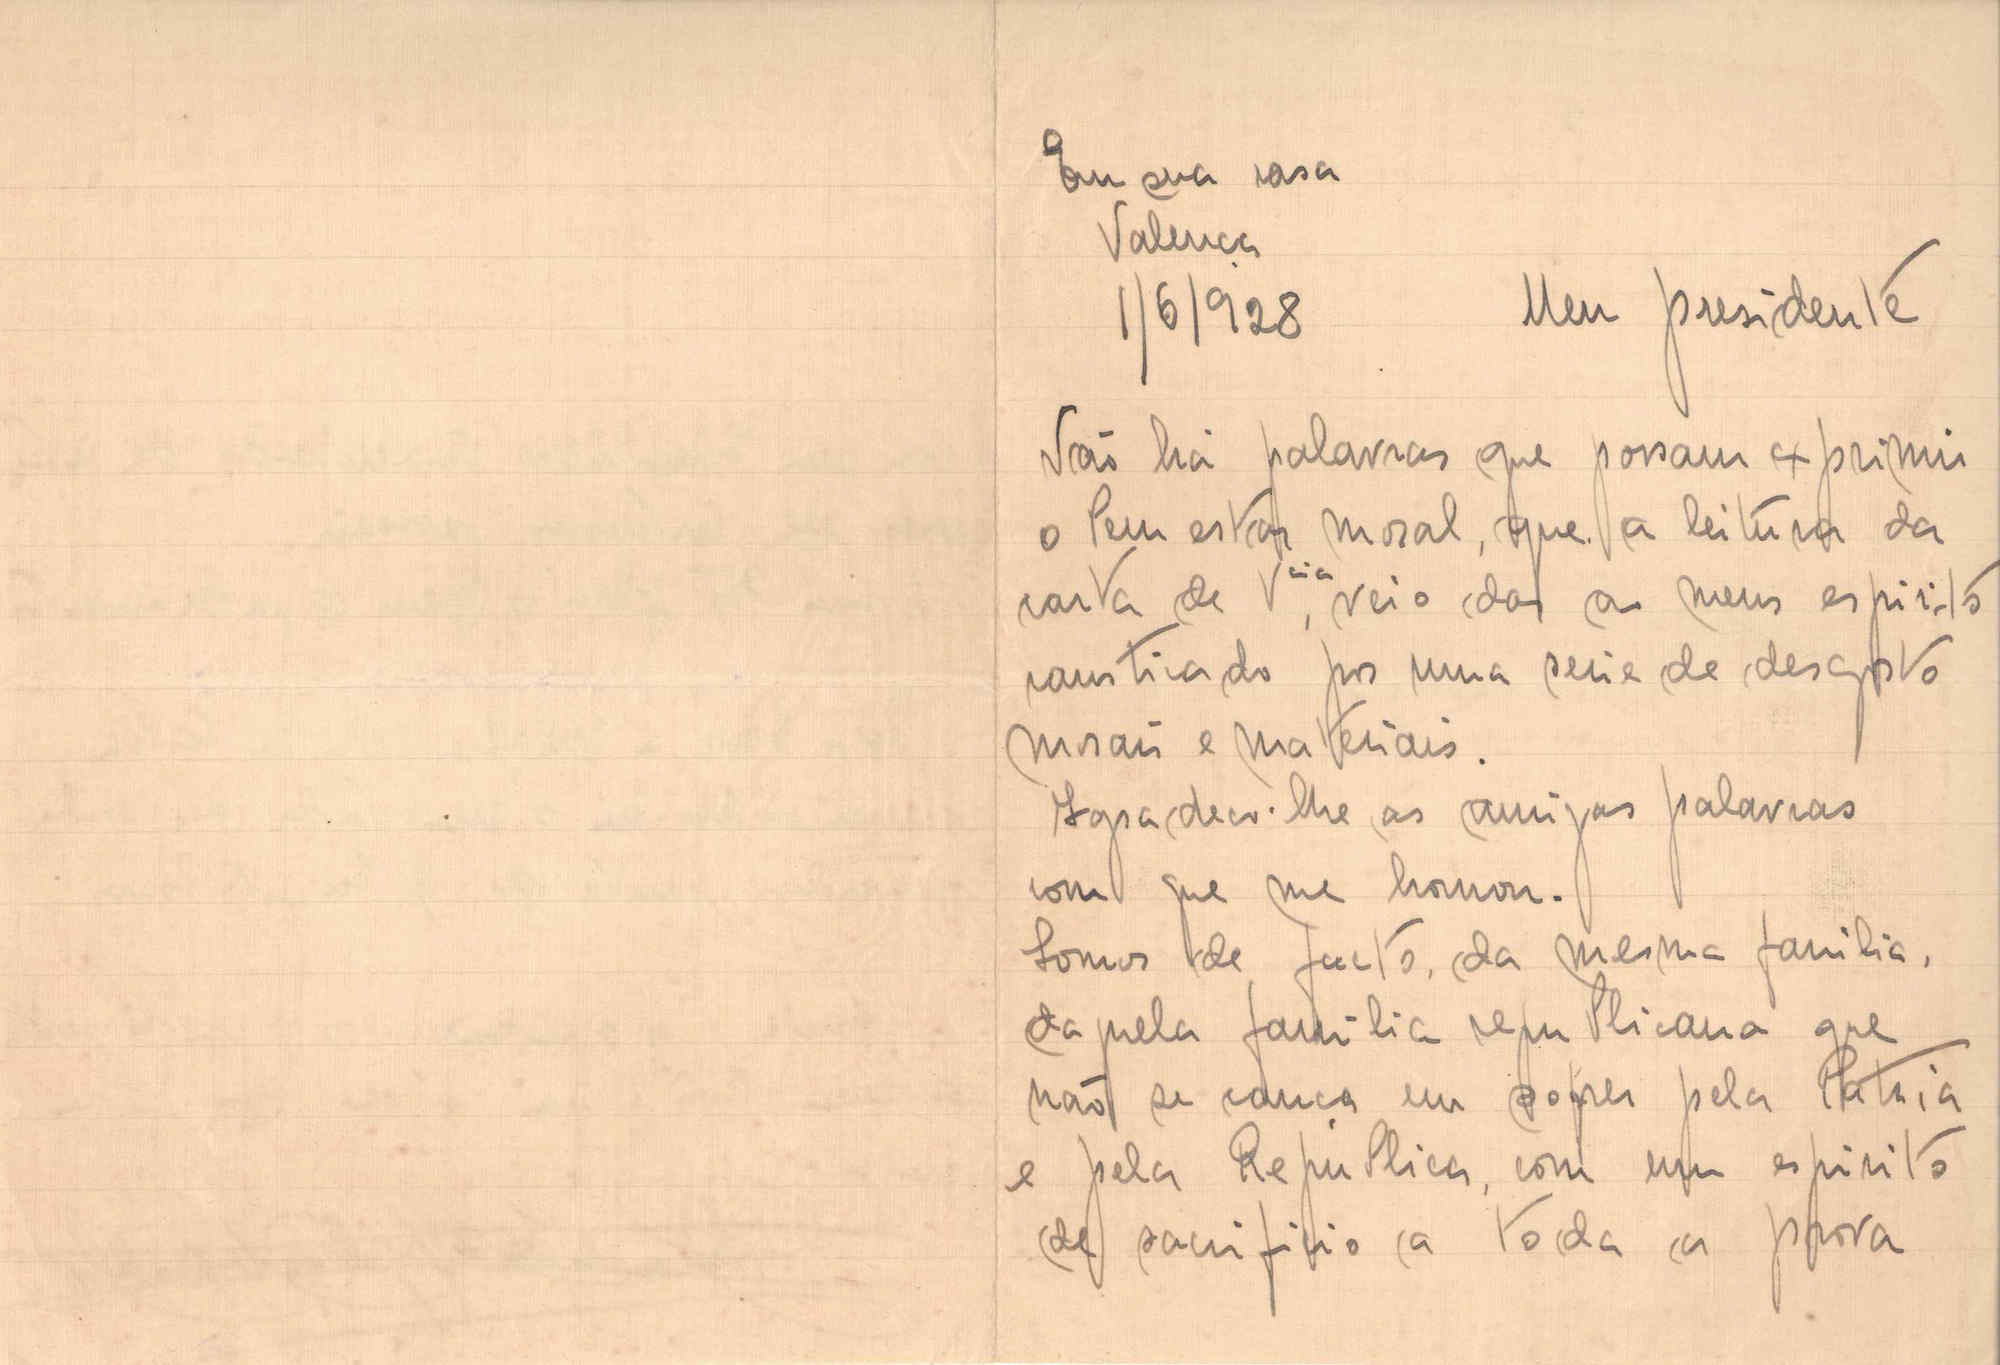 Em sua casa
Valença
1/6/928
Meu presidente
Não há palavras que possam exprimir
o bem estar moral, que a leitura da
carta de V.cia, veio dar ao meu espirito
causticado por uma serie de desgosto
morais e materiais.
Agradeço-lhe as amigas palavras
com que me honrou.
Somos de facto, da mesma familia,
daquela familia republicana que
não se cança em sofrer pela Patria
e pela República, com um espirito
de sacrificio a toda a prova